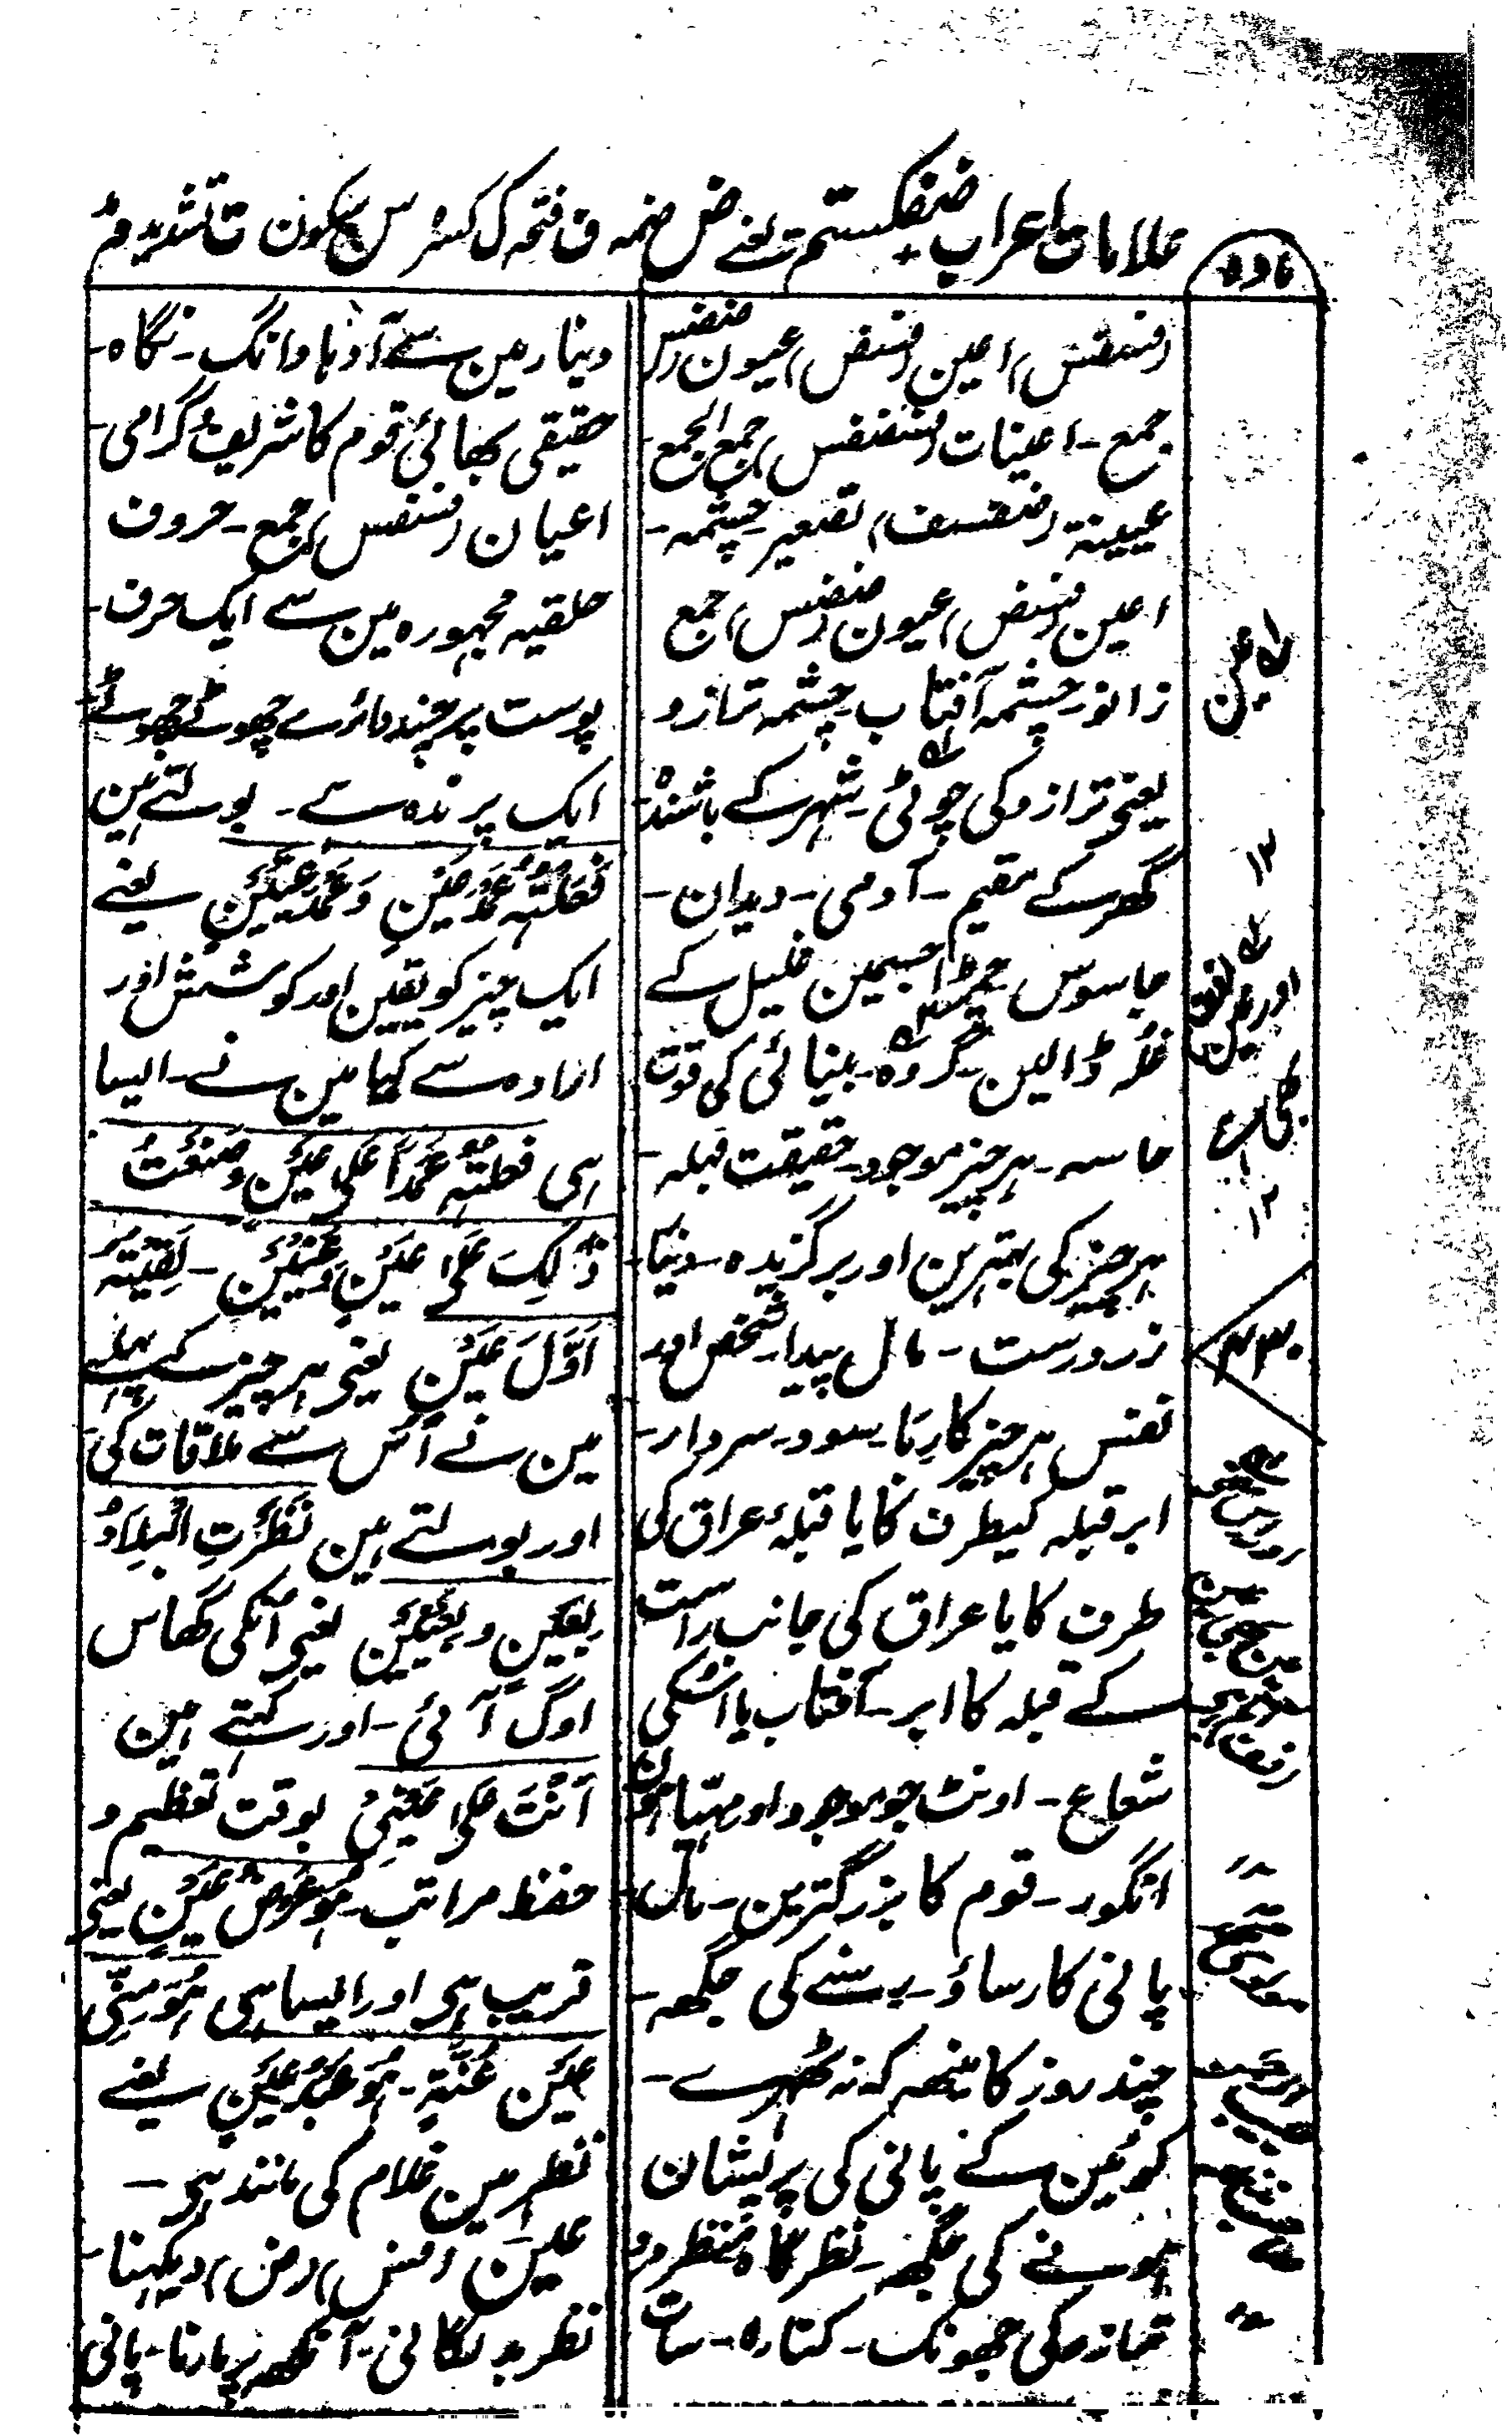 علامات اعراب ضفکستم یعنے ض ضمہ ف فتحہ ک کسرہ س سکون ت تشدید م
مادہ
(فسفس) اعین (فسفض) عیون (ضفضس
جمع - اعینات (فسفضفس) جمع الجمع
عیینة (ضفسف) تصغیر چشمہ -
اعین (فسفض) عیون (ضفضس) جمع
زانو - چشمہ آفتاب - چشمہ ترازو
یعنی ترازو کی چوٹی - شہر کے باشندے
گھر کے مقیم - آدمی - دیدبان -
جاسوس چمڑا جسمین غلیل کے
غلہ ڈالین - گروہ - بینائی کی قوت
حاسہ - ہر چیز موجود - حقیقت قبلہ -
ہر چیز کی بہترین اور برگزیدہ - دنیا -
زر درست - مال پیدا - شخص اور
نفس ہر چیز کا - ربا - سود - سردار -
ابر قبلہ کیطرف کا یا قبلۂ عراق کی
طرف کا یا عراق کی جانب راست
کے قبلہ کا ابر - آفتاب یا اسکی
شعاع - اونٹ جو موجود اور مہیا ہون
انگور - قوم کا بزرگترین - مال -
پانی کا رساؤ - برسنے کی جگھہ -
چند روز کا مینھہ کہ نہ ٹھہرے -
کوئین کے پانی کی پریشان
ہونے کی جگھہ - نظر گاہ منظر
ترازو کی جھونک - کنارہ - سات
دینار مین سے آدہا دانگ - نگاہ -
حقیقی بھائی قوم کا شریف گرامی -
اعیان (فسفس) جمع - حروف
حلقیہ مجہورہ مین سے ایک حرف -
پوست پر چند دائرے چھوٹے چھوٹے
ایک پرندہ ہے - بولتے ہین
فَعَلْتُہٗ عَمْدَ عَیْنٍ وَعَمْدَ عَیْنَیْنِ یعنے
ایک چیز کو یقین اور کوشش اور
ارادہ سے کہا مین نے - ایسا
ہی فعلتُہٗ عَمْداً عَلٰی عَیْنٍ وصَنَعْتُ
ذٰلِکَ عَلٰی عَیْنٍ وعَیْنَیْنِ - لَقِیْتُہٗ
اَوَّلَ عَیْنٍ یعنی ہر چیز کے پہلے
مین نے اُس سے ملاقات کی
اور بولتے ہین نَظَرَتِ البِلَادُ
بِعَیْنٍ و بِعَیْنَیْنِ یعنی اُنکی گھاس
اوگ آئی - اور کہتے ہین
اَنْتَ عَلٰی عَیْنِیْ بوقت تعظیم و
حفظ مراتب - ہُوَ عَرْضُ عَیْنٍ یعنی
قریب ہی اور ایسا ہی ہُوَ مِنِّی
عَیْنُ عُنَّةٍ - ہُوَ عَبْدُ عَیْنٍ یعنے
نظر مین غلام کی مانند ہی -
عَیْن (فس) (ض) دیکہنا -
نظر بد لگانی - آنکھہ پر مارنا - پانی
عین
۱۲
۱۲
۷۳۰